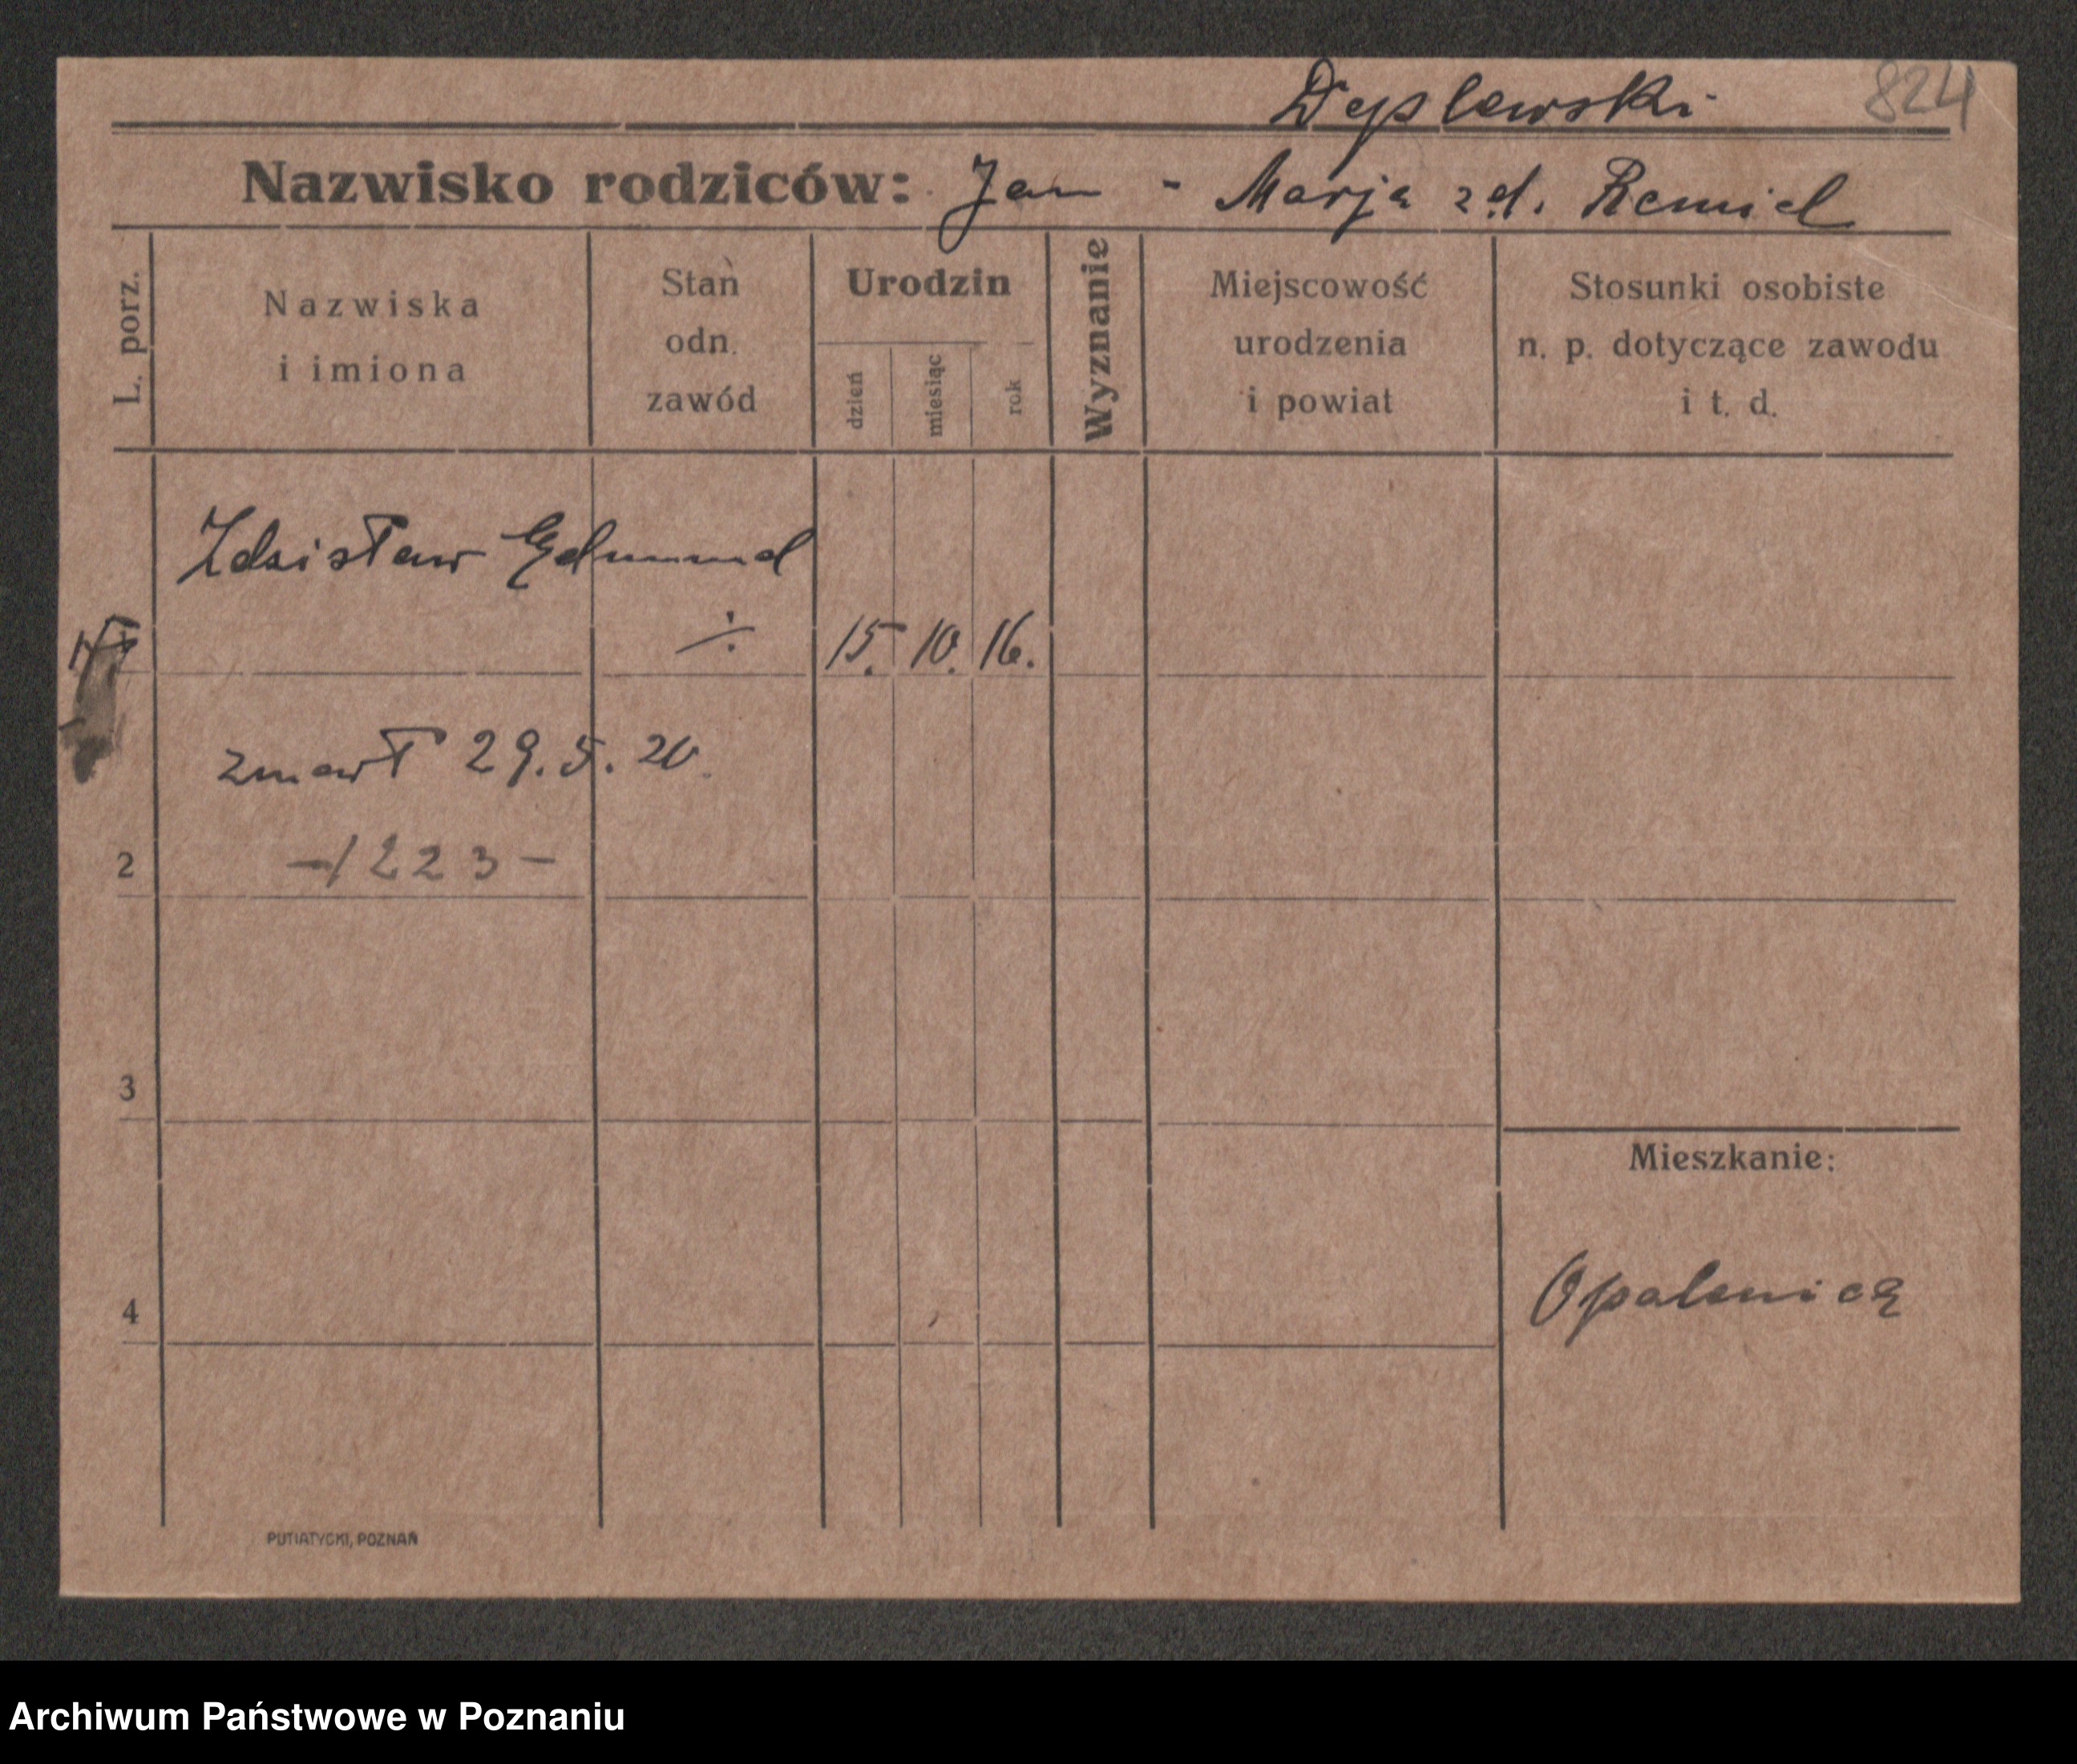 Deplewski 824
Nazwisko rodziców: Jan - Marja zd. Remiel
L. porz.
Nazwiska
i imiona
Stan
odn.
zawód
Urodzin
dzień
miesiąc
rok
Wyznanie
Miejscowość
urodzenia
i powiat
Stosunki osobiste
n. p. dotyczące zawodu
i t. d.
Zdzisław Edmund
÷ 15. 10. 16.
zmarł 29. 5. 20.
2 -1223-
3
Mieszkanie:
4 Opalenica
PUTIATYCKI, POZNAŃ
Archiwum Państwowe w Poznaniu